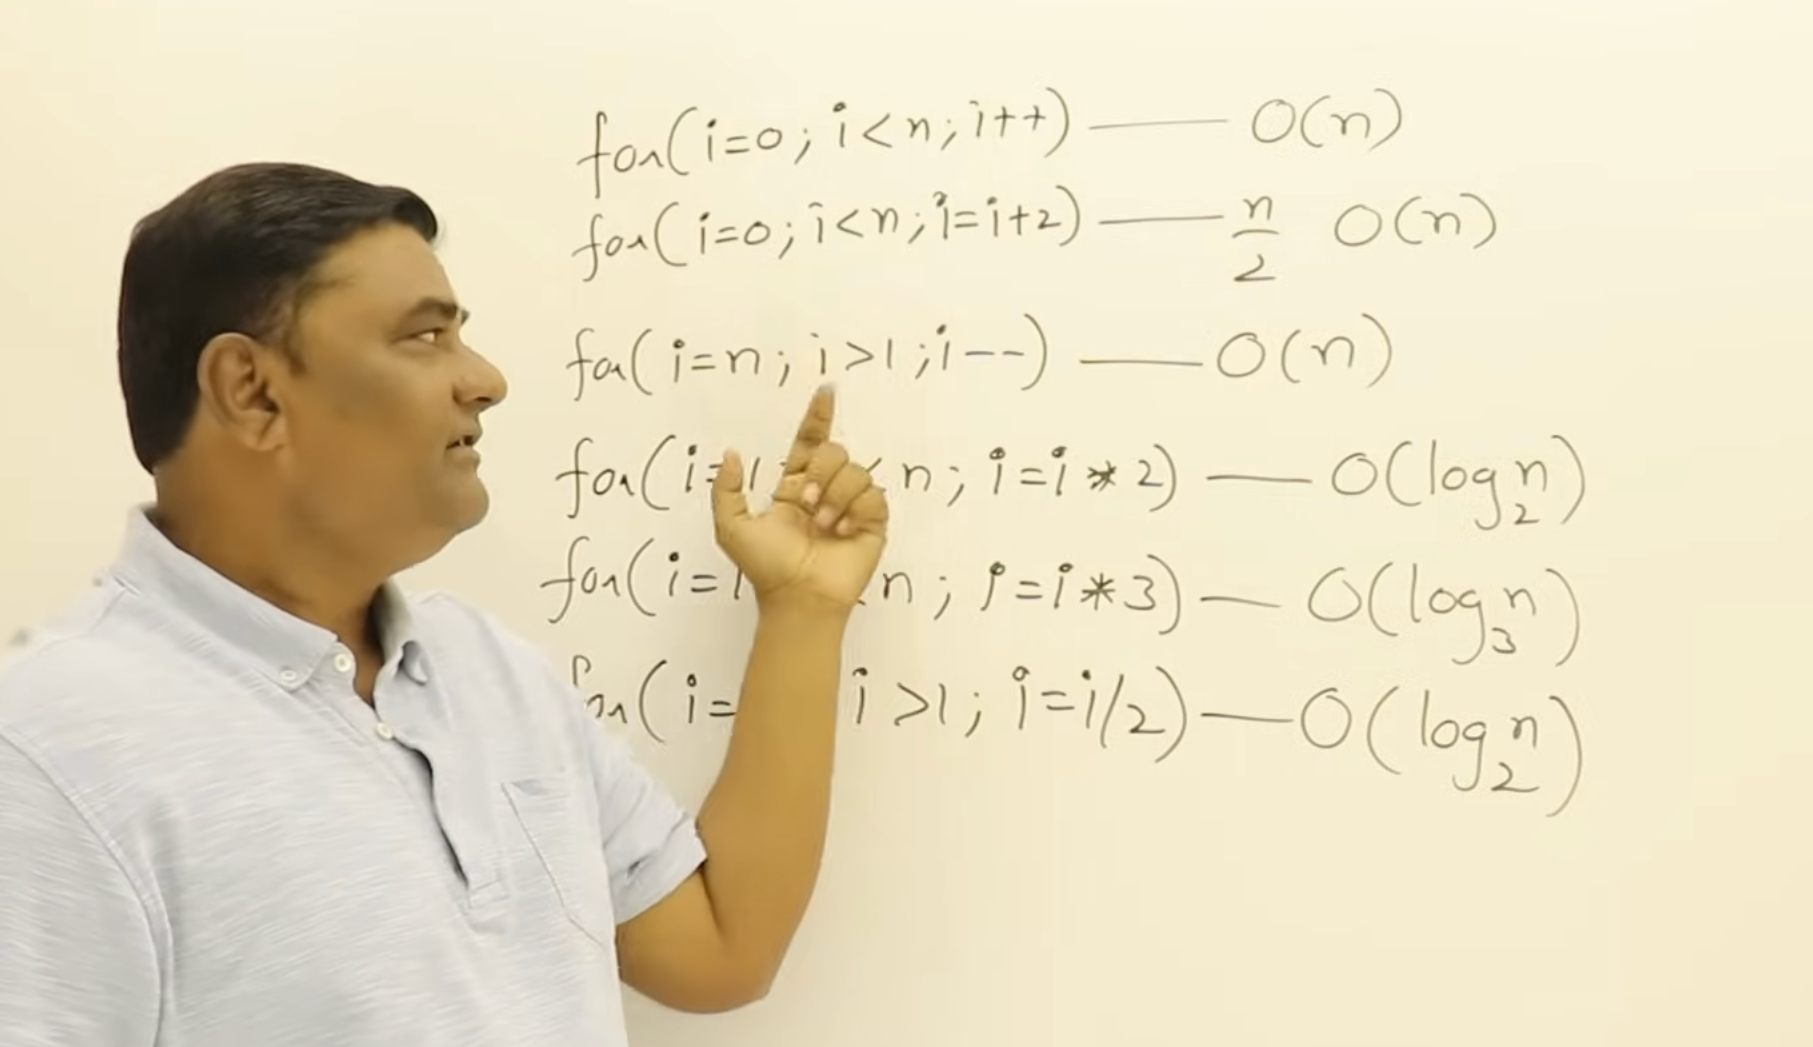 for(i=0; i<n; i++) —— O(n)
for(i=0; i<n; i=i+2) —— n/2 O(n)
for(i=n; i>1; i--) —— O(n)
for(i=1; < n; i=i*2) —— O(log₂n)
for(i=1 <n; i=i*3) — O(log₃n)
for(i= i>1; i=i/2) — O(log₂n)